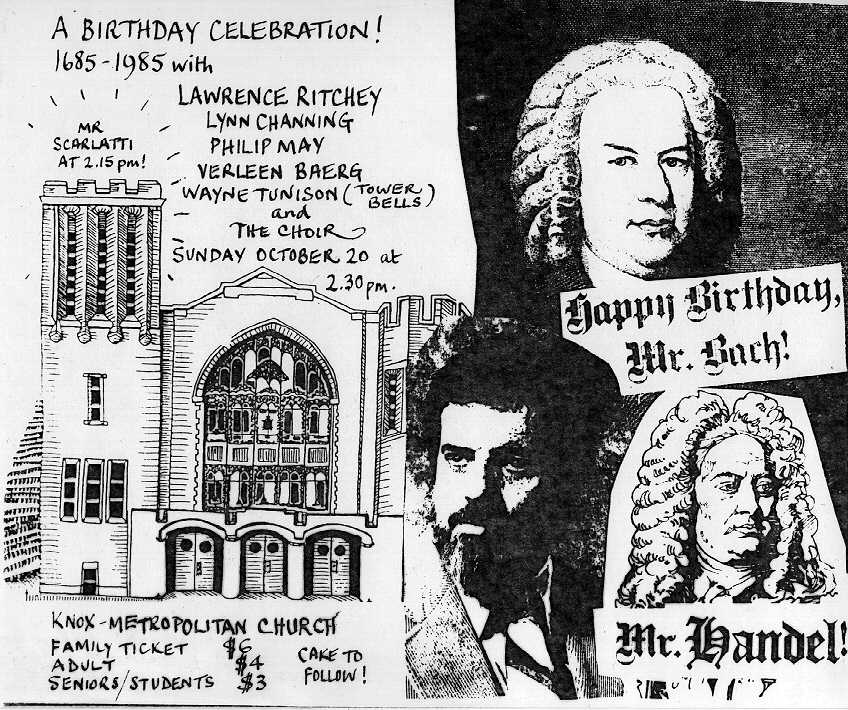 A BIRTHDAY CELEBRATION!
1685-1985 with
LAWRENCE RITCHEY
LYNN CHANNING
PHILIP MAY
VERLEEN BAERG
WAYNE TUNISON (TOWER BELLS)
and
THE CHOIR
SUNDAY OCTOBER 20 at
2.30 pm.
MR
SCARLATTI
AT 2.15 pm!
Happy Birthday,
Mr. Bach!
Mr. Handel!
KNOX-METROPOLITAN CHURCH
FAMILY TICKET $6
ADULT $4
SENIORS/STUDENTS $3
CAKE TO
FOLLOW!